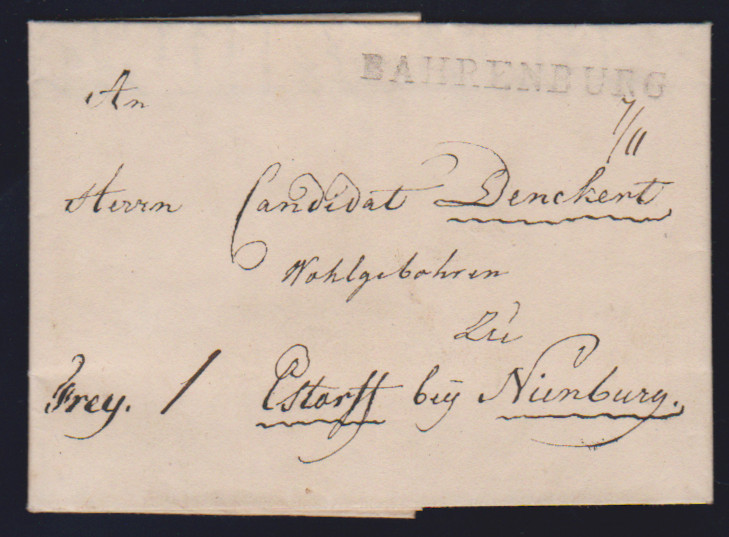 BAHRENBURG
An
7/11
Herrn Candidat Denckert
Wohlgebohren
zu
Frey. / Estorff beÿ Nienburg.